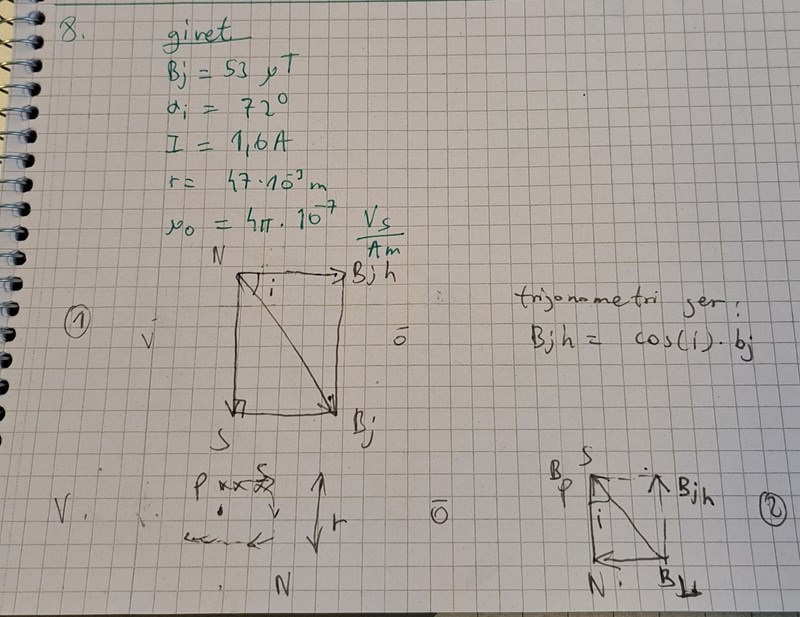 8. givet
Bj = 53 μT
αi = 72°
I = 1,6A
r = 47·10⁻³ m
μ₀ = 4π·10⁻⁷ Vs/Am
N Bjh
i
① V ö
S Bj
trigonometri ger:
Bjh = cos(i)·bj
P ×××
S
V. r ö
N
S
Bp Bjh
i ②
N